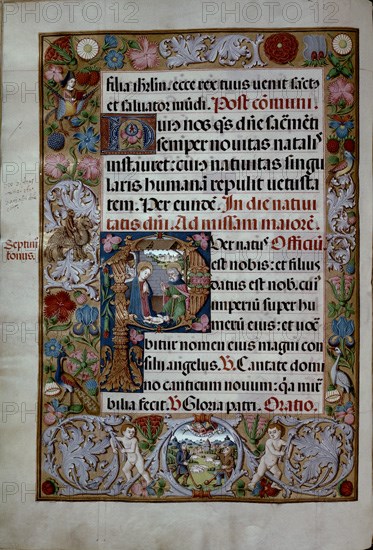 filia ihrlm: ecce rex tuus venit sāctꝰ
et salvator mūdi. Post cōmuni.
Huiꝰ nos qs dn̄e sacmēti
semper novitas natal
instauret: cuiꝰ natiuitas singu
laris humanā repulit vetusta
tem. Per eundē. In die natiui
tatis dn̄i. Ad missam maiorē.
Septimi
tonus.
Puer natꝰ Officiū
est nobis: et filius
datus est nob. cuiꝰ
imperiū super hu
merū eius: et vocā
bitur nomen eius magni con
silii angelus. V. Cantate domi
no canticum novum: qa mira
bilia fecit. V Gloria patri. Oratio.